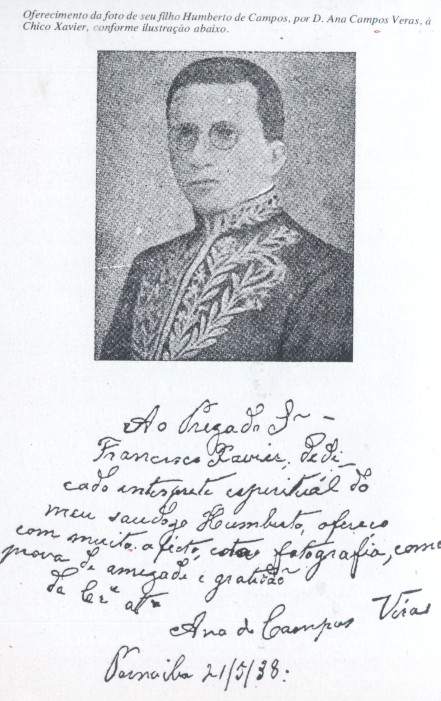 Oferecimento da foto de seu filho Humberto de Campos, por D. Ana Campos Veras, à
Chico Xavier, conforme ilustração abaixo.
Ao Prezado Sr
Francisco Xavier, dedi-
cado interprete espirituál do
meu saudoso Humberto, ofereço
com muito afecto, esta fotografia, como
prova de amizade e gratidão
da Crª atª
Ana de Campos Véras
Parnaiba 21/5/38.